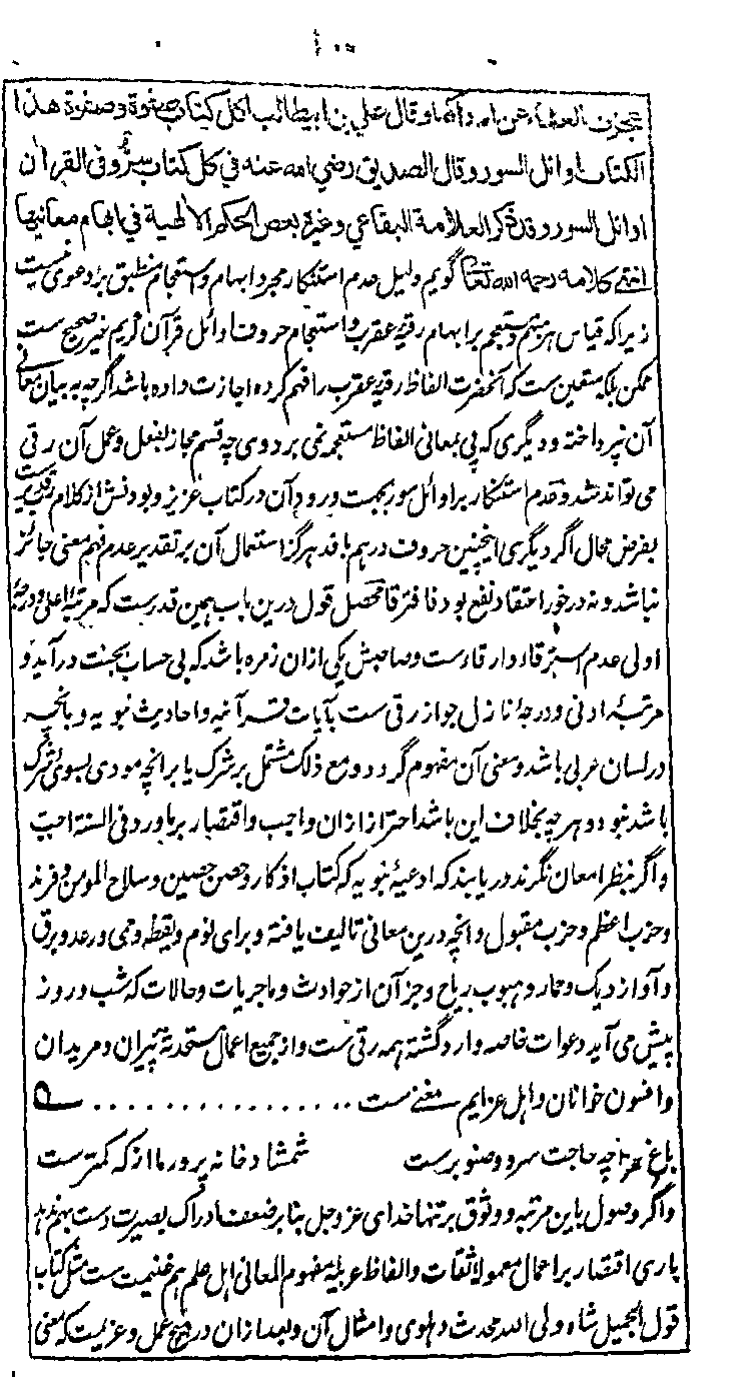 ۱۰۰
عجزت العلماء عن ادراكها وقال علي بن ابيطالب لكل كتاب صفوة وصفوة هذا
الكتاب اوائل السور وقال الصديق رضي الله عنه في كل كتاب سرّ وفى القران
اوائل السور وقد ذكر العلامة البقاعي وغيره بعض الحكم الالهية في ابهام معانيها
انتهى كلامه رحمه الله تعا گویم دلیل عدم استنکار مجرد ابهام واستعجام منطبق بر دعوی نیست
زیرا که قیاس هر مبهم ومستعجم برابهام رقیهٔ عقرب واستعجام حروف اوائل قرآن کریم غیر صحیح ست
ممکن بلکه متیقن ست که آنحضرت الفاظ رقیهٔ عقرب را فهم کرده اجازت داده باشد اگرچه به بیان معانی
آن نپرداخته و دیگری که پی بمعانی الفاظ مستعجمه نمی برد وی چه قسم مجاز بفعل وعمل آن رقی
می تواند شد وعدم استنکار براوائل سور بجهت ورود آن در کتاب عزیز وبودنش از کلام رب ست
بفرض محال اگر دیگری اینچنین حروف درهم بافد هرگز استعمال آن بر تقدیر عدم فهم معنی جائز
نباشد ونه درخور اعتقاد نفع بود فافترقا محصل قول درین باب همین قدرست که مرتبهٔ اعلی ودرجهٔ
اولی عدم استرقاء وارقاءست وصاحبش یکی ازان زمره باشد که بی حساب بجنت درآید و
مرتبهٔ ادنی ودرجهٔ نازل جواز رقی ست بآیات قرآنیه واحادیث نبویه وبانچه
درلسان عربی باشد ومعنی آن مفهوم گردد ومع ذلک مشتمل برشرک یا برانچه مودی بسوی شرک
باشد نبود وهرچه بخلاف این باشد احتراز ازان واجب واقتصار برماورد فی السنة احبّ
واگر بنظر امعان نگرند دریابند که ادعیهٔ نبویه که کتاب اذکار وحصن حصین وسلاح المومن وفرند
وحزب اعظم وحزب مقبول وانچه درین معانی تالیف یافته وبرای نوم ویقظه وحمی ورعد وبرق
وآواز دیک وحمار وهبوب ریاح وجز آن از حوادث وماجریات وحالات که شب وروز
پیش می آید دعوات خاصه وارد گشته همه رقی ست واز جمیع اعمال مستحدثهٔ پیران ومریدان
وافسون خوانان واهل عزایم مغنی ست . . . . . . . . . . . . . . . .
باغ مرا چه حاجت سرو وصنوبرست شمشاد خانه پرور ما از که کمترست
واگر وصول باین مرتبه ووثوق برتنها خدای عزوجل بنابر ضعف ادراک بصیرت دست بهم ندهد
باری اقتصار براعمال معمولۀ ثقات والفاظ عربیهٔ مفهوم المعانی اهل علم هم غنیمت ست مثل کتاب
قول الجمیل شاه ولی الله محدث دهلوی وامثال آن وبعد ازان در هیچ عمل وعزیمت که معنی